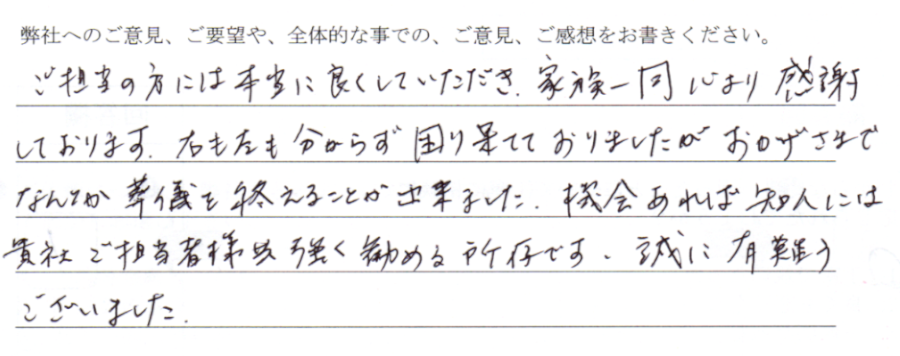 弊社へのご意見、ご要望や、全体的な事での、ご意見、ご感想をお書きください。
ご担当の方には本当に良くしていただき、家族一同心より感謝
しております。右も左も分からず困り果てておりましたがおかげさまで
なんとか葬儀を終えることが出来ました。機会あれば知人には
貴社ご担当者様を強く勧める所存です。誠に有難う
ございました。